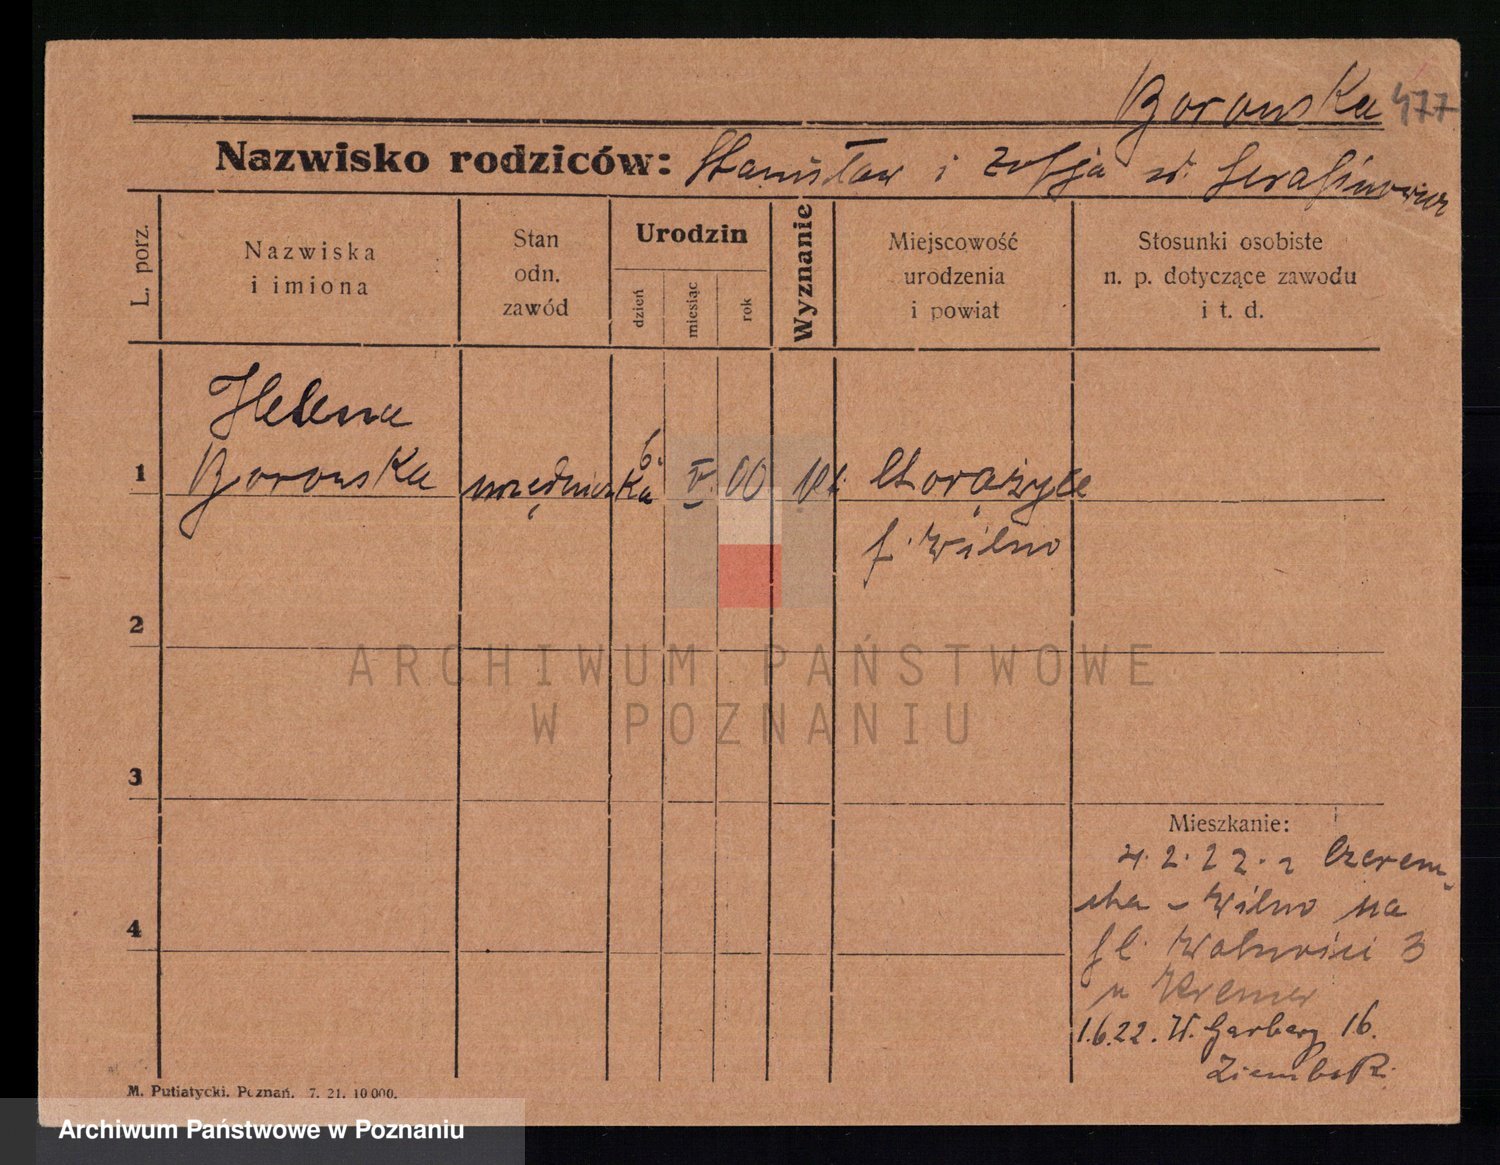 Borowska 477
Nazwisko rodziców: Stanisław i Zofja z d. Serafinowicz
L. porz.
Nazwiska
i imiona
Stan
odn.
zawód
Urodzin
dzień
miesiąc
rok
Wyznanie
Miejscowość
urodzenia
i powiat
Stosunki osobiste
n. p. dotyczące zawodu
i t. d.
Helena
1 Borowska urzędniczka 6. V. 00 Chorążyce
p. Wilno
2
3
4
Mieszkanie:
4.2.22. z Czerem-
cha - Wilno na
Pl. Wolności 3
u Kremer
1.6.22. W. Garbary 16.
M. Putiatycki. Poznań. 7. 21. 10 000.
ARCHIWUM PAŃSTWOWE
W POZNANIU
Archiwum Państwowe w Poznaniu